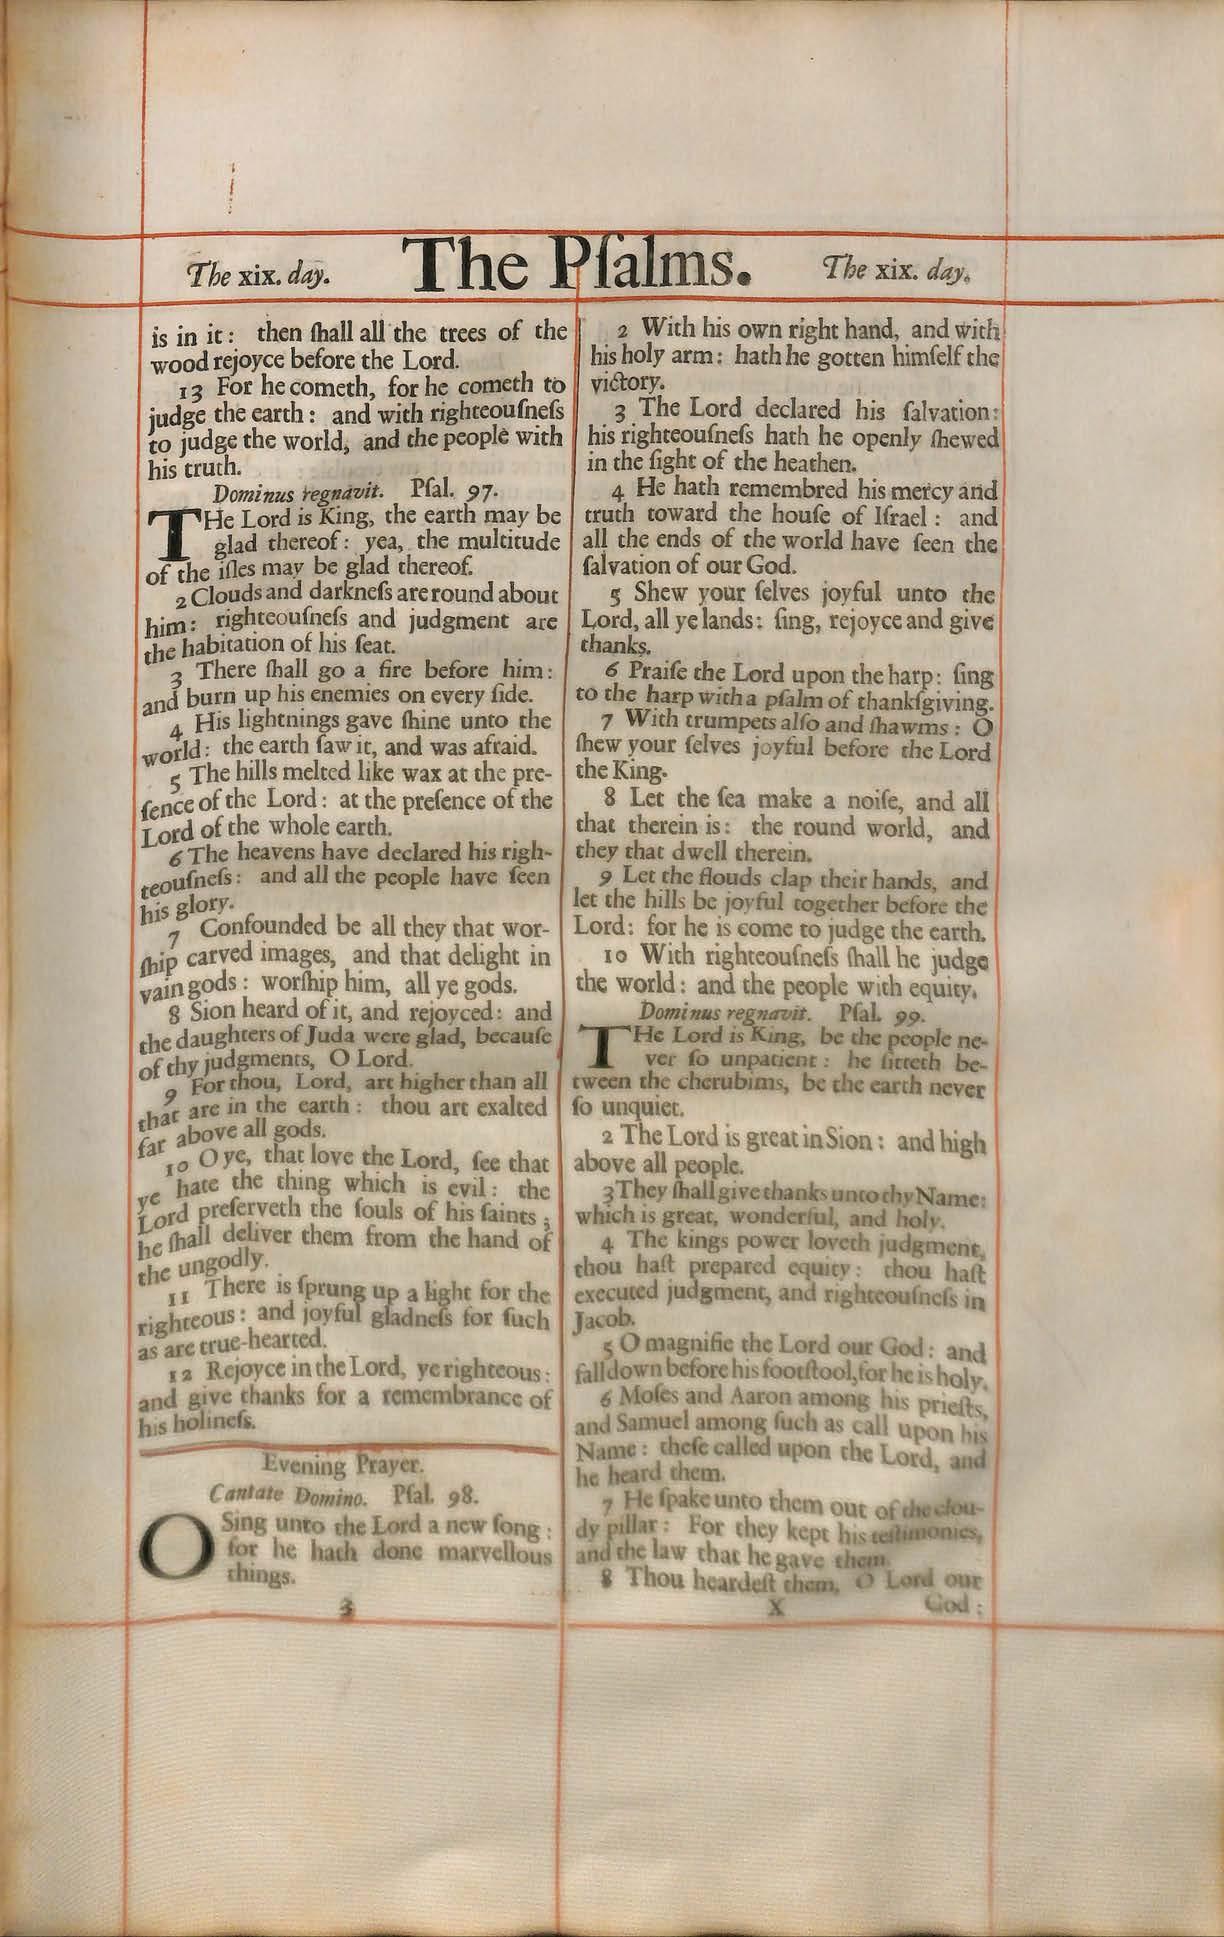 The xix. day. The Pſalms. The xix. day.
is in it: then ſhall all the trees of the
wood rejoyce before the Lord.
13 For he cometh, for he cometh to
judge the earth: and with righteouſneſs
to judge the world, and the people with
his truth.
Dominus regnavit. Pſal. 97.
THe Lord is King, the earth may be
glad thereof: yea, the multitude
of the iſles may be glad thereof.
2 Clouds and darkneſs are round about
him: righteouſneſs and judgment are
the habitation of his ſeat.
3 There ſhall go a fire before him:
and burn up his enemies on every ſide.
4 His lightnings gave ſhine unto the
world: the earth ſaw it, and was afraid.
5 The hills melted like wax at the pre-
ſence of the Lord: at the preſence of the
Lord of the whole earth.
6 The heavens have declared his righ-
teouſneſs: and all the people have ſeen
his glory.
7 Confounded be all they that wor-
ſhip carved images, and that delight in
vain gods: worſhip him, all ye gods.
8 Sion heard of it, and rejoyced: and
the daughters of Juda were glad, becauſe
of thy judgments, O Lord.
9 For thou, Lord, art higher than all
that are in the earth: thou art exalted
far above all gods.
10 O ye, that love the Lord, ſee that
ye hate the thing which is evil: the
Lord preſerveth the ſouls of his ſaints;
he ſhall deliver them from the hand of
the ungodly.
11 There is ſprung up a light for the
righteous: and joyful gladneſs for ſuch
as are true-hearted.
12 Rejoyce in the Lord, ye righteous:
and give thanks for a remembrance of
his holineſs.
Evening Prayer.
Cantate Domino. Pſal. 98.
O Sing unto the Lord a new ſong:
for he hath done marvellous
things.
3
2 With his own right hand, and with
his holy arm: hath he gotten himſelf the
victory.
3 The Lord declared his ſalvation:
his righteouſneſs hath he openly ſhewed
in the ſight of the heathen.
4 He hath remembred his mercy and
truth toward the houſe of Iſrael: and
all the ends of the world have ſeen the
ſalvation of our God.
5 Shew your ſelves joyful unto the
Lord, all ye lands: ſing, rejoyce and give
thanks.
6 Praiſe the Lord upon the harp: ſing
to the harp with a pſalm of thankſgiving.
7 With trumpets alſo and ſhawms: O
ſhew your ſelves joyful before the Lord
the King.
8 Let the ſea make a noiſe, and all
that therein is: the round world, and
they that dwell therein.
9 Let the flouds clap their hands, and
let the hills be joyful together before the
Lord: for he is come to judge the earth.
10 With righteouſneſs ſhall he judge
the world: and the people with equity.
Dominus regnavit. Pſal. 99.
THe Lord is King, be the people ne-
ver ſo unpatient: he ſitteth be-
tween the cherubims, be the earth never
ſo unquiet.
2 The Lord is great in Sion: and high
above all people.
3 They ſhall give thanks unto thy Name:
which is great, wonderful, and holy.
4 The kings power loveth judgment,
thou haſt prepared equity: thou haſt
executed judgment, and righteouſneſs in
Jacob.
5 O magnifie the Lord our God: and
fall down before his footſtool, for he is holy.
6 Moſes and Aaron among his prieſts,
and Samuel among ſuch as call upon his
Name: theſe called upon the Lord, and
he heard them.
7 He ſpake unto them out of the clou-
dy pillar: For they kept his teſtimonies,
and the law that he gave them.
8 Thou heardeſt them, O Lord our
X God: